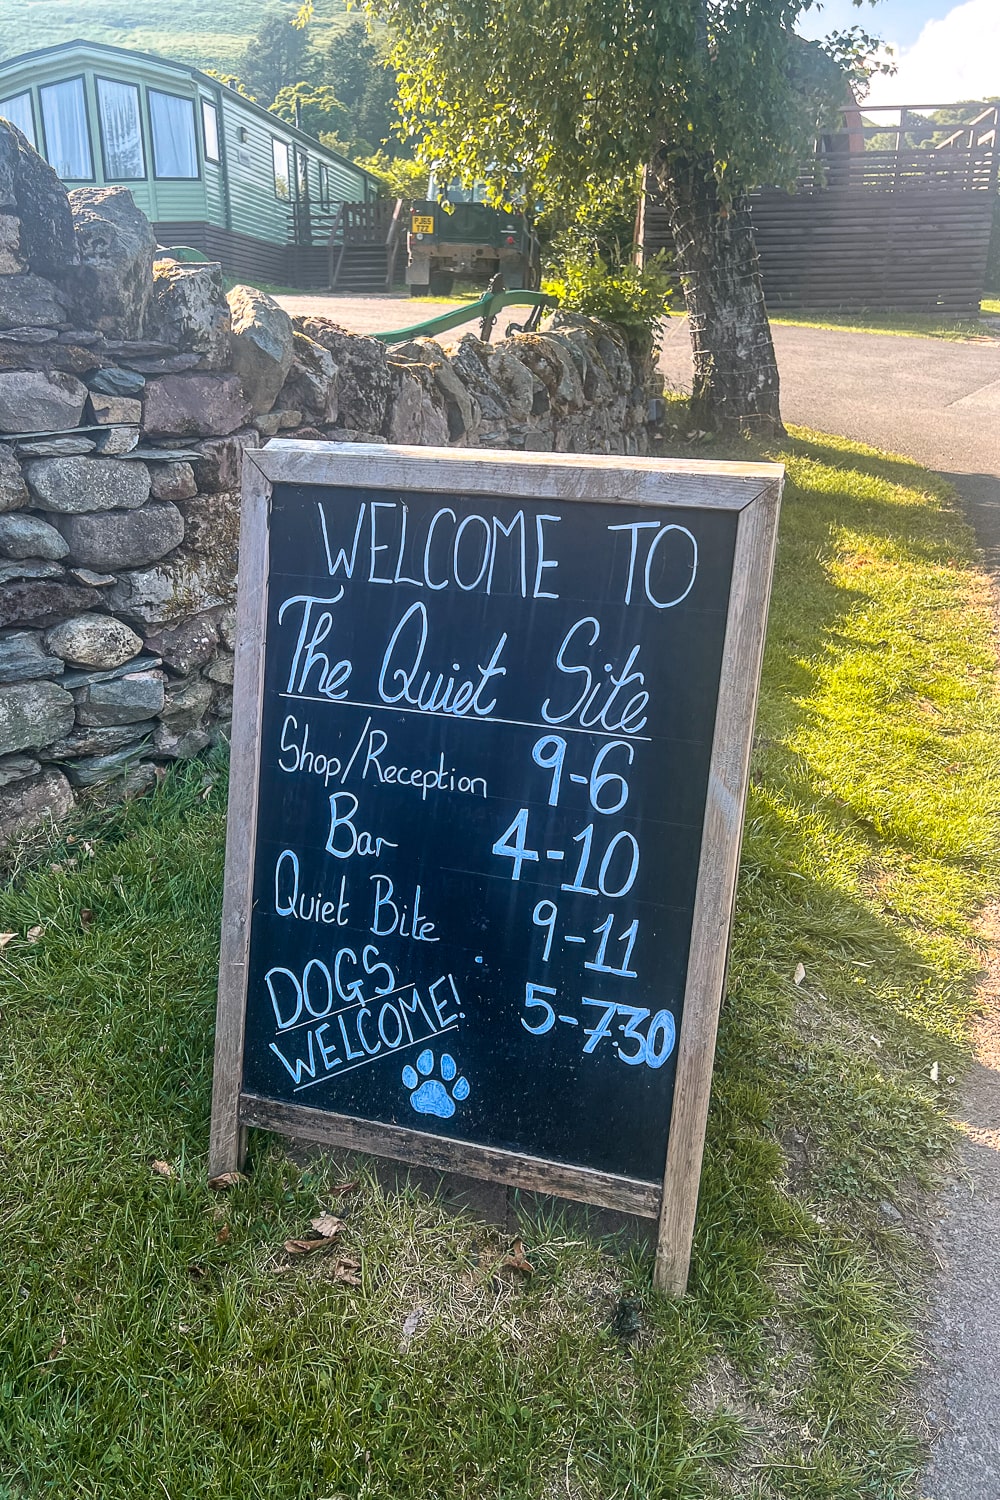 WELCOME TO
The Quiet Site
Shop/Reception 9-6
Bar 4-10
Quiet Bite 9-11
5-730
DOGS
WELCOME!